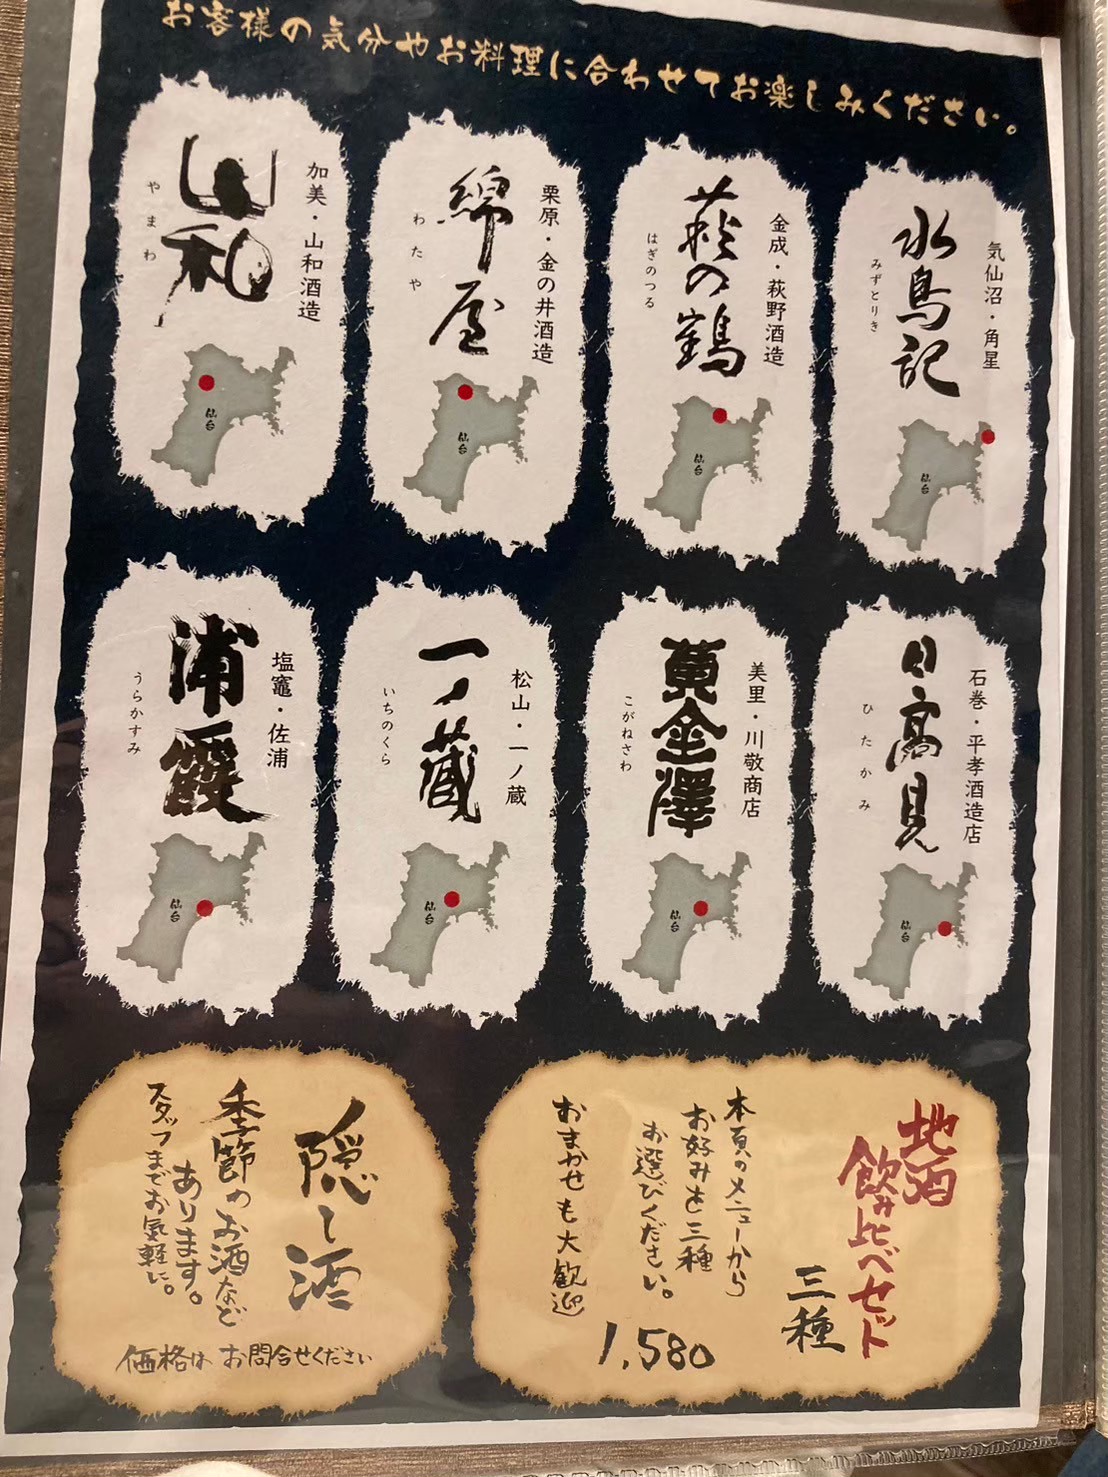 お客様の気分やお料理に合わせてお楽しみください。
気仙沼・角星
水鳥記
みずとりき
仙台
金成・萩野酒造
萩の鶴
はぎのつる
仙台
栗原・金の井酒造
綿屋
わたや
仙台
加美・山和酒造
山和
やまわ
仙台
石巻・平孝酒造店
日高見
ひたかみ
仙台
美里・川敬商店
黄金澤
こがねさわ
仙台
松山・一ノ蔵
一ノ蔵
いちのくら
仙台
塩竈・佐浦
浦霞
うらかすみ
仙台
地酒
飲み比べセット
三種
本頁のメニューから
お好みを三種
お選びください。
おまかせも大歓迎
1,580
隠し酒
季節のお酒など
あります。
スタッフまでお気軽に。
価格はお問合せください